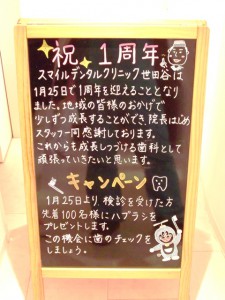 祝 1周年
スマイルデンタルクリニック世田谷は
1月25日で1周年を迎えることとなり
ました。地域の皆様のおかげで
少しずつ成長することができ、院長はじめ
スタッフ一同感謝しております。
これからも成長しつづける歯科として
頑張っていきたいと思います。
キャンペーン
1月25日より、検診を受けた方
先着100名様にハブラシを
プレゼントします。
この機会に歯のチェックを
しましょう。